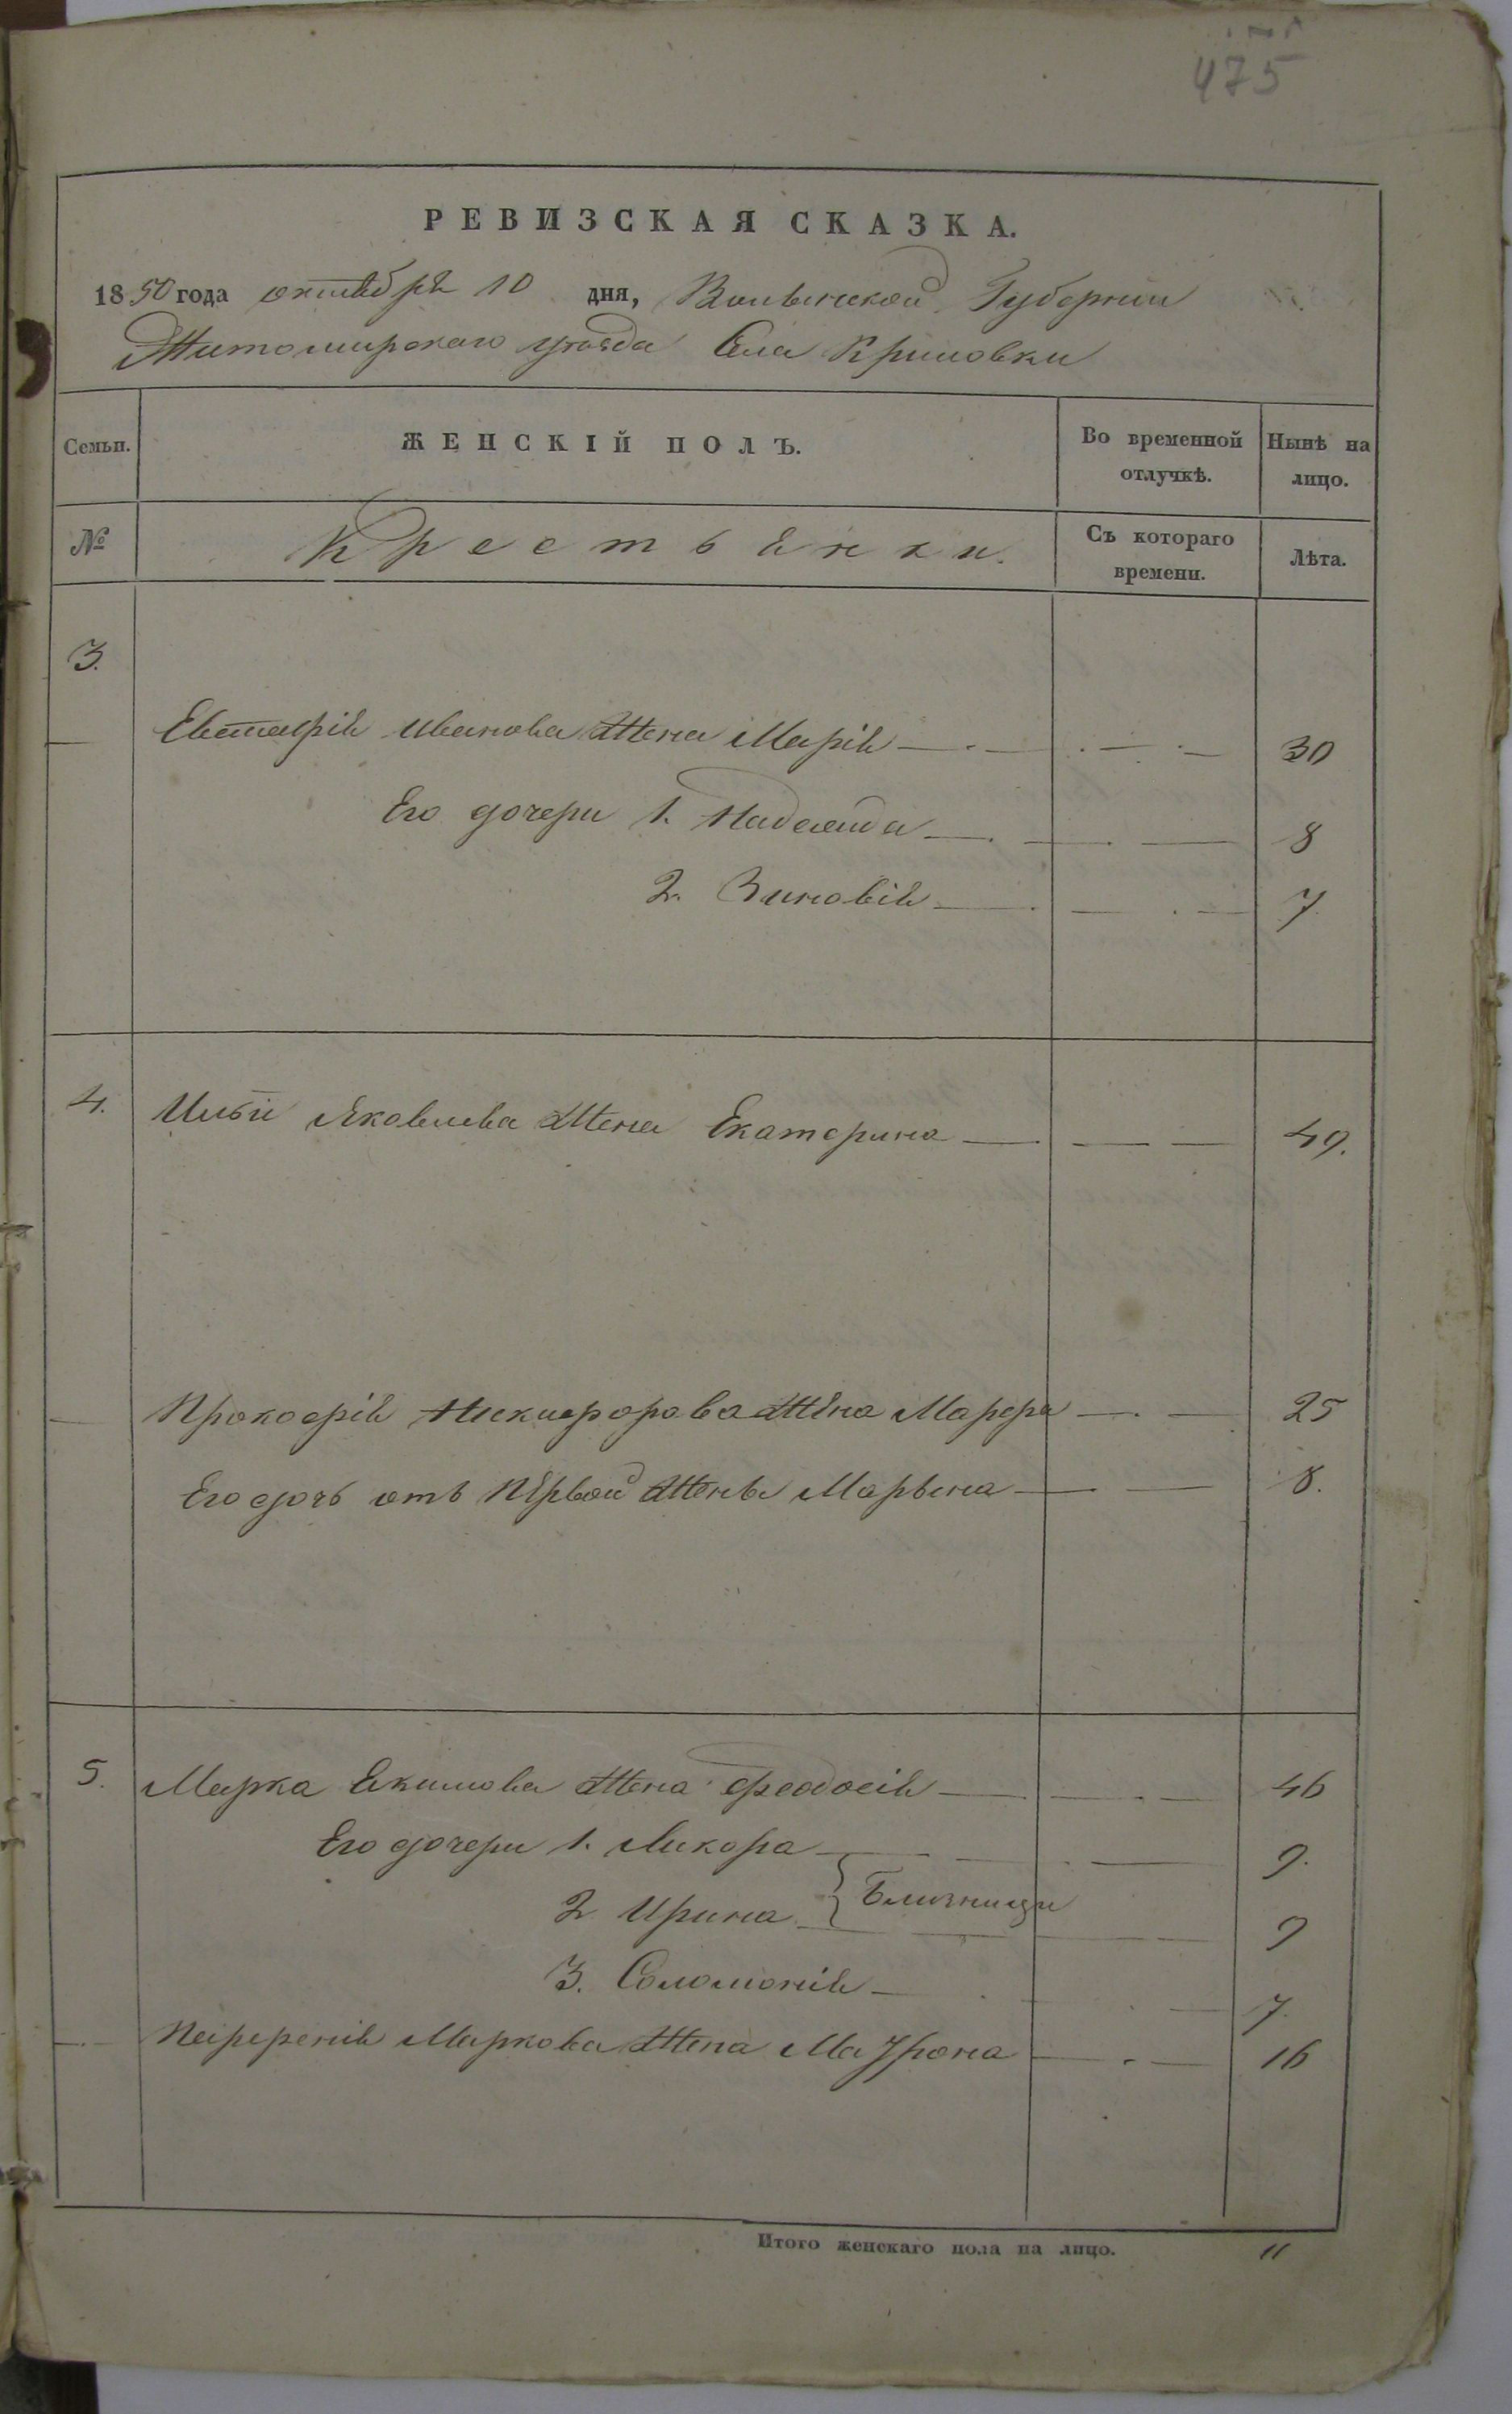 475
РЕВИЗСКАЯ СКАЗКА.
1850 года октября 10 дня, Волынской Губернии
Житомирскаго уѣзда Села Кримовки
Семьи. ЖЕНСКІЙ ПОЛЪ. Во временной отлучкѣ. Нынѣ на лицо.
№ Крестьянки. Съ котораго времени. Лѣта.
3.
Евстафія Иванова Жена Марія 30
Его дочери 1. Надежда 8
2. Зиновія 7.
4. Ильи Яковлева Жена Екатерина 49.
Прокофія Никифорова Жена Марфа 25
Его дочь отъ Первой Жены Марьяна 8.
5. Марка Якимова Жена Феодосія 46
Его дочери 1. Ликора 9.
2 Ирина } Близници 9
3. Соломонія 7.
Парфенія Маркова Жена Матрона 16
Итого женскаго пола на лицо. 11